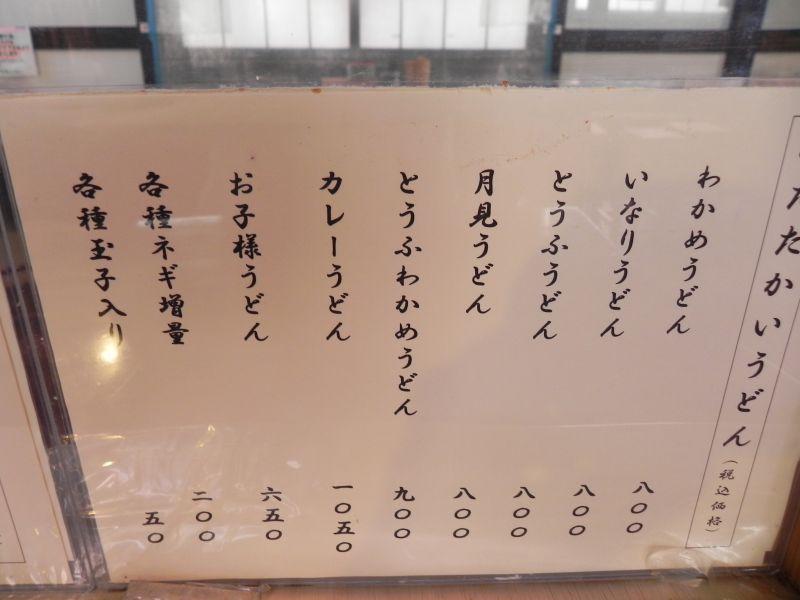 たたかいうどん
（税込価格）
わかめうどん
八〇〇
いなりうどん
八〇〇
とうふうどん
八〇〇
月見うどん
八〇〇
とうふわかめうどん
九〇〇
カレーうどん
一〇五〇
お子様うどん
六五〇
各種ネギ増量
二〇〇
各種玉子入り
五〇